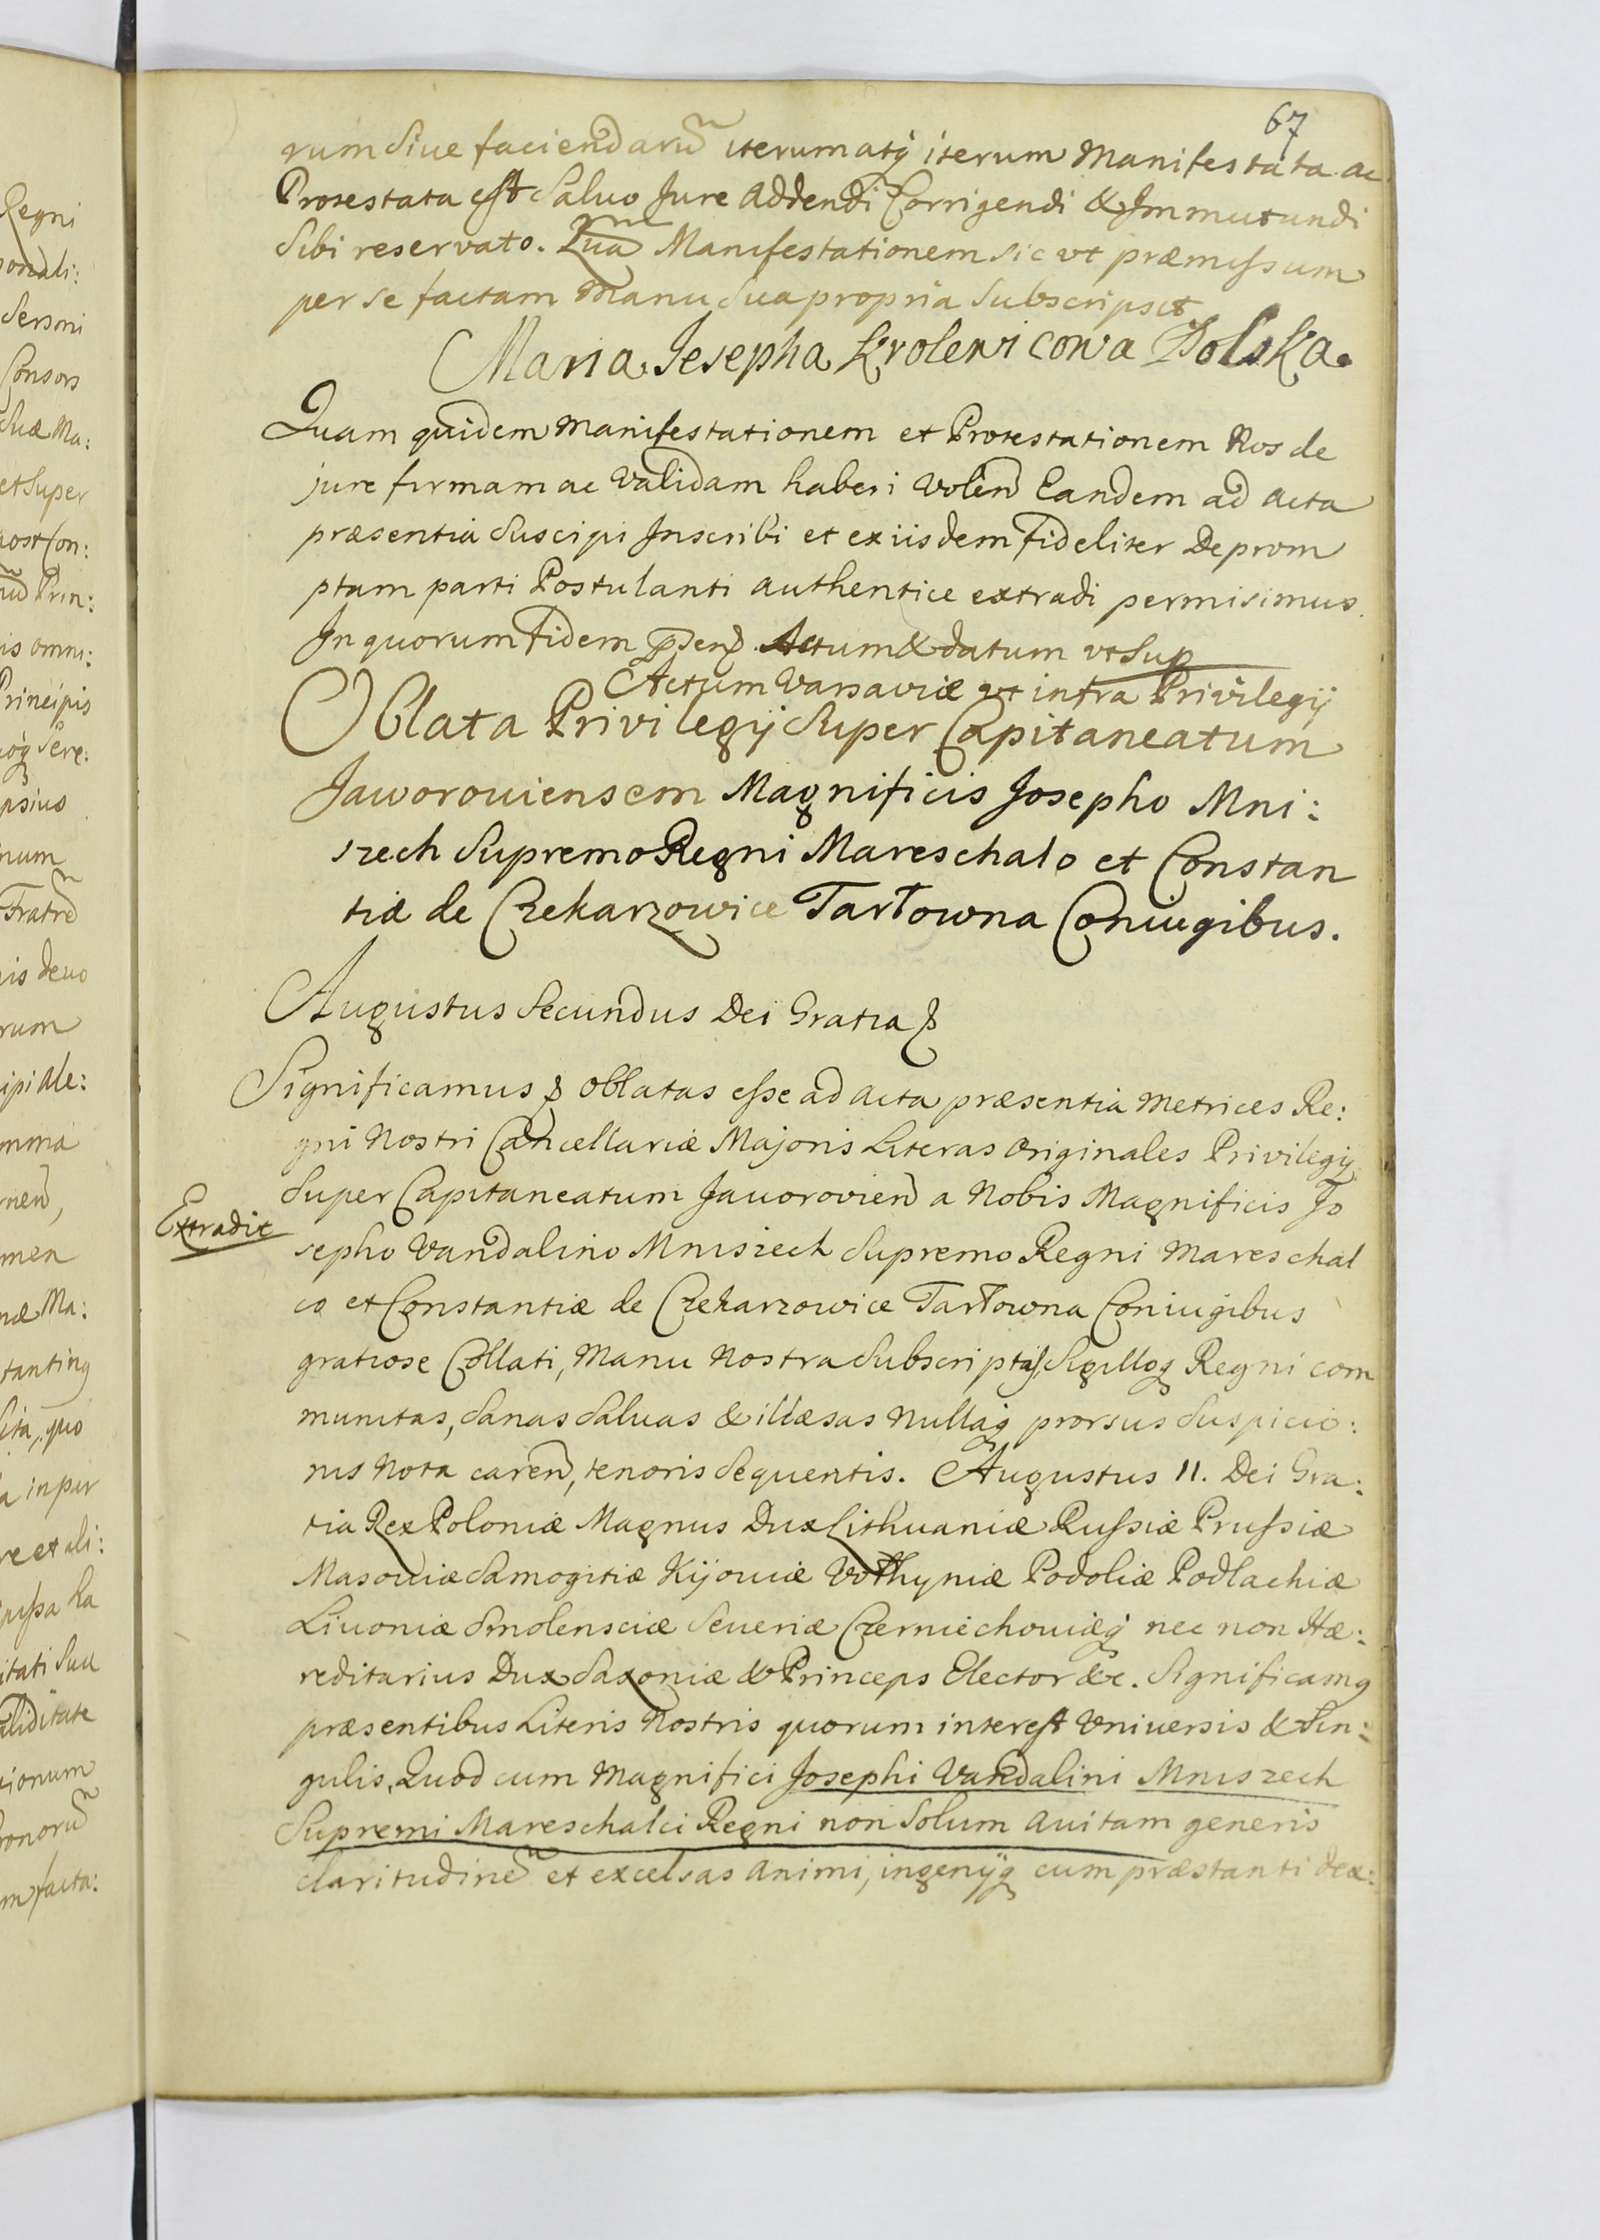 67
rum Siue faciendarũ iterumatq́ iterum Manifestata ac
Protestata est Saluo Jure Addendi Corrigendi & Immutundi
Sibi reservato. Quã Manifestationem sic ut præmissum
per se factam Manu Sua propria Subscripsit
Maria Jesepha Krolewicowa Polska.
Quam quidem Manifestationem et Protestationem Nos de
jure firmam ac Validam haberi Volen Eandem ad acta
præsentia Suscipi Inscribi et ex iisdem fideliter Deprom
ptam parti Postulanti authentice extradi permisimus.
In quorum fidem Actum & datum ut Sup
Actum Varsaviæ ut intra Privilegij
Oblata Privilegij Super Capitaneatum
Jaworouiensem Magnificis Josepho Mni:
szech Supremo Regni Mareschalo et Constan
tiæ de Czekarzowice Tarłowna Coniugibus.
Augustus Secundus Dei Gratia
Significamus oblatas esse ad acta præsentia Metrices Re:
gni Nostri Cancellariæ Majoris Literas Originales Privilegij
Super Capitaneatum Jauorovien a Nobis Magnificis Jo
Extradit
sepho Vandalino Mniszech Supremo Regni Mareschal
co et Constantiæ de Czekarzowice Tarłowna Coniugibus
gratiose Collati, Manu Nostra Subscriptas, Sigilloq Regni com
munitas, Sanas Saluas & illæsas Nullaq prorsus Suspicio:
nis Nota caren, tenoris Sequentis. Augustus II. Dei Gra:
tia Rex Poloniæ Magnus Dux Lithuaniæ Russiæ Prussiæ
Masouiæ Samogitiæ Kijouiæ Vołhyniæ Podoliæ Podlachiæ
Liuoniæ Smolensciæ Seueriæ Czerniechouiæq́ nec non Hæ:
reditarius Dux Saxoniæ & Princeps Elector &c. Significamq
præsentibus Literis Nostris quorum interest Vniuersis & Sin:
gulis, Quod cum Magnifici Josephi Vandalini Mniszech
Supremi Mareschalci Regni non Solum Auitam generis
claritudinẽ et excelsas Animi, ingenijq cum præstanti dex: